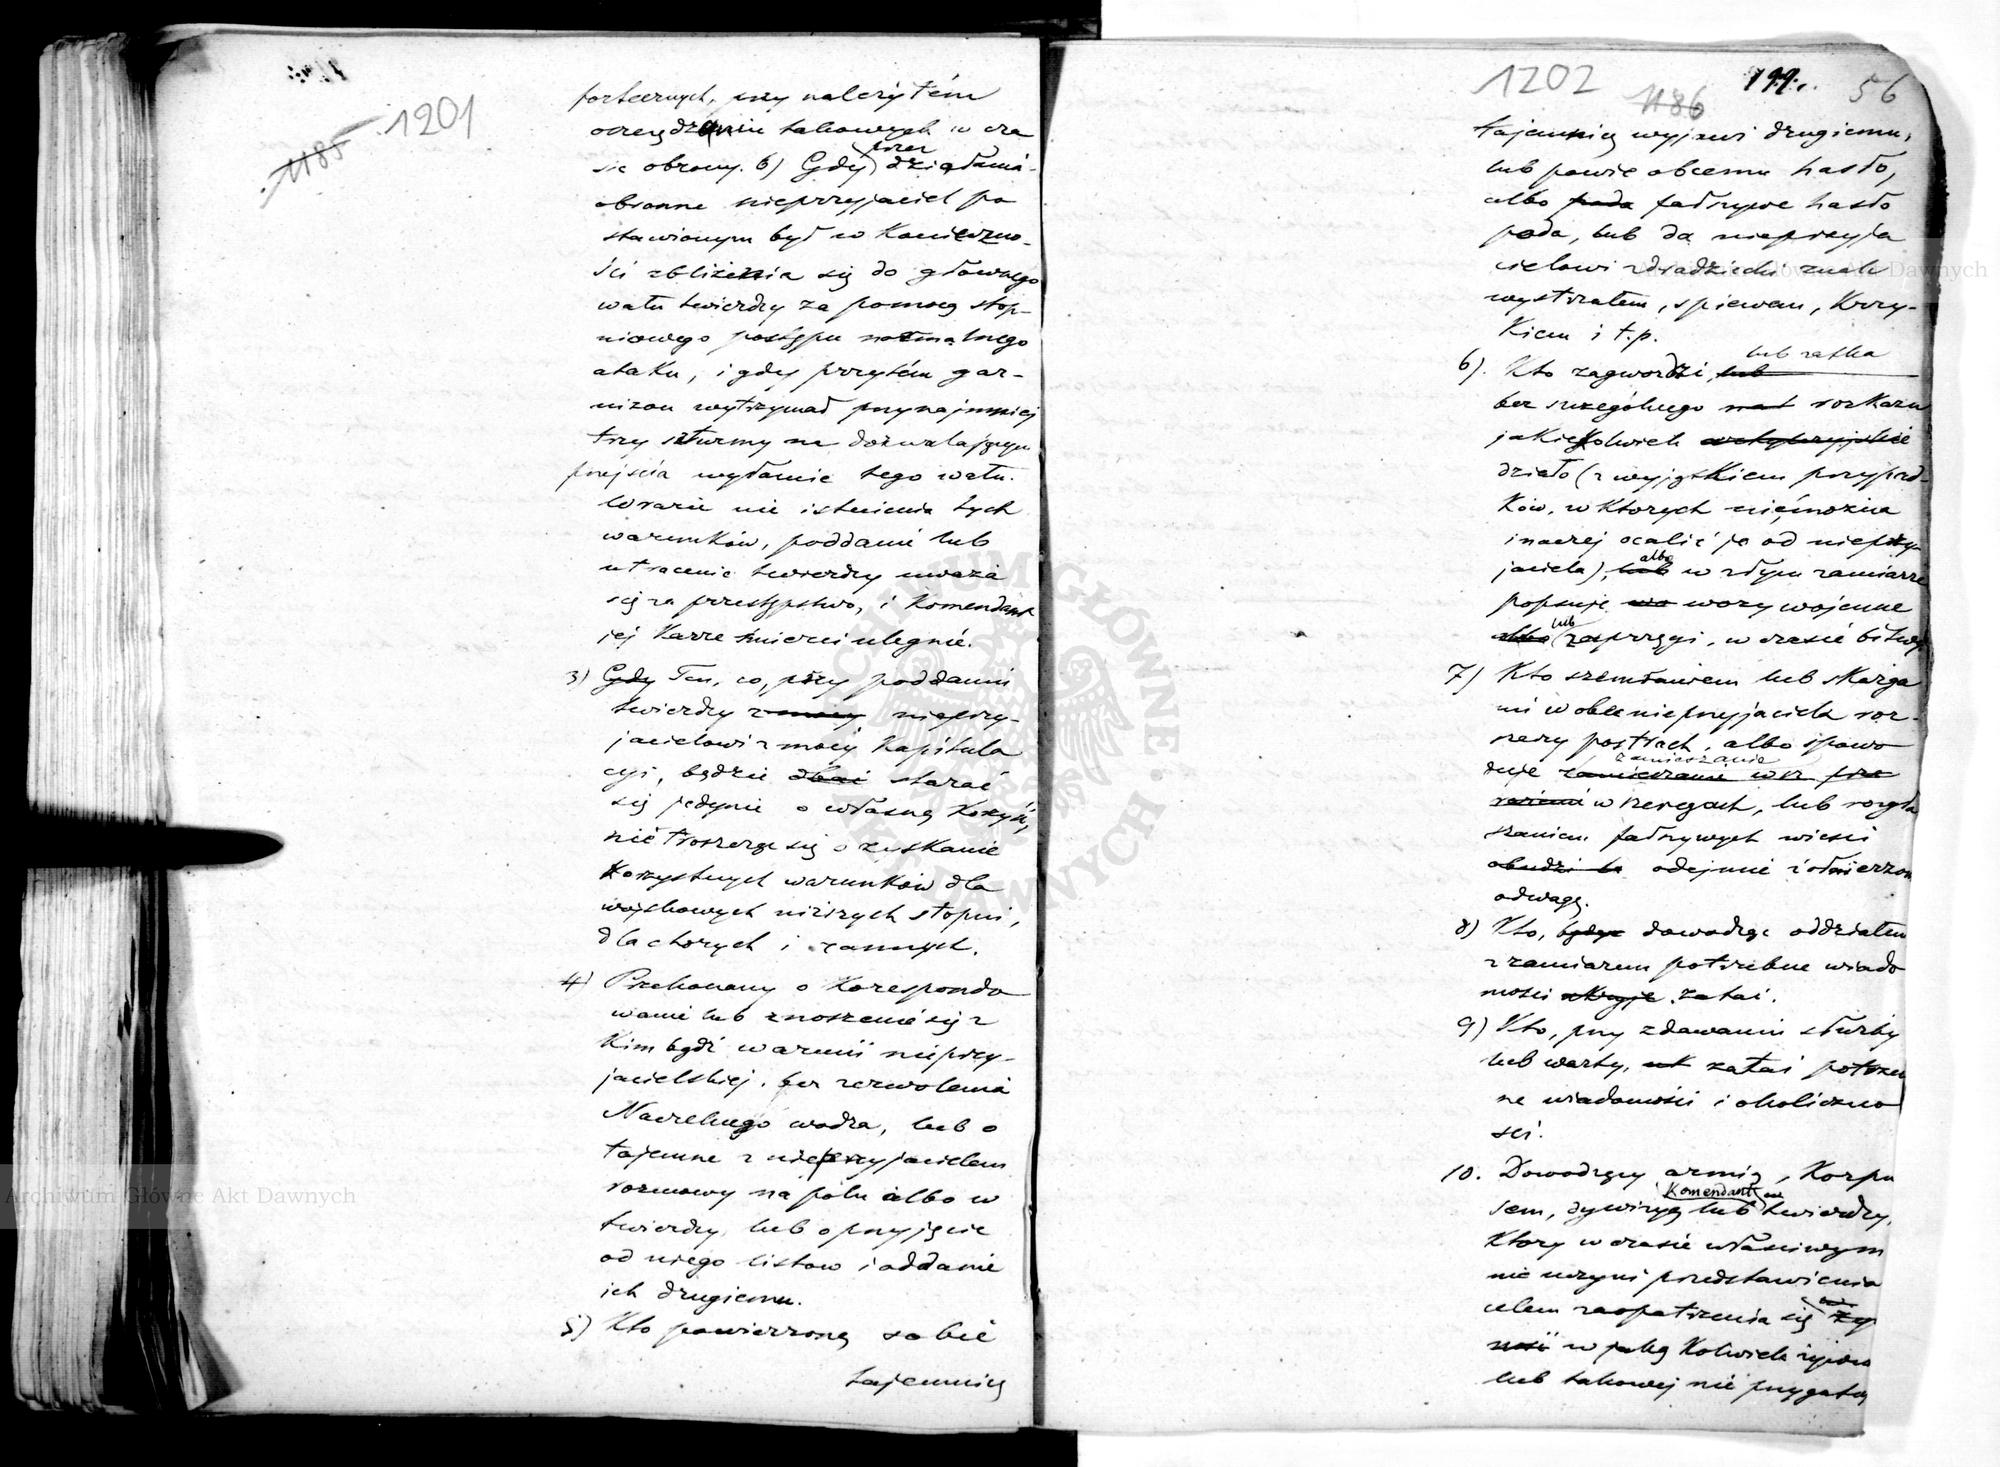 1201
1185
fortecznych, przy należytém
oszczędzaniu takowych w cza
sie obrony. b) Gdy przez działania
obronne nieprzyjaciel po
stawionym był w Konieczno-
ści zbliżenia się do głównego
wału twierdzy za pomocą stop-
niowego postępu normalnego
ataku, i gdy przytém gar-
nizon wytrzymał przynajmniej
trzy szturmy na dozwalającym
przejścia wyłamie tego wału.
W razie nie istnienia tych
warunków, poddanie lub
utracenie twierdzy uważa
się za przestępstwo, i Komendant
jej Karze śmierci ulegnie.
3) Gdy Ten, co, przy poddaniu
twierdzy z mocy nieprzy-
jacielowi z mocy Kapitula
cyi, będzie dbać starać
się jedynie o własną Korzyść,
nie troszcząc się o zyskanie
Korzystnych warunków dla
wojskowych niższych stopni,
dla chorych i rannych.
4) Przekonany o Korespondo
wanie lub znoszenie się z
Kim bądź w armii nieprzy-
jacielskiej, bez zezwolenia
Naczelnego wodza, lub o
tajemne z nieprzyjacielem
rozmowy na polu albo w
twierdzy, lub o przyjęcie
od niego listow i oddanie
ich drugiemu.
5) Kto powierzoną sobie
tajemnicę
1202
1186
199.
56
tajemnicę wyjawi drugiemu,
lub powie obcemu hasło,
albo poda fałszywe hasło
poda, lub da nieprzyja
cielowi zdradziecki znak
wystrzałem, śpiewem, Krzy-
Kiem i t.p.
6). Kto zagwoździ, lub lub zatka
bez szczególnego rozkazu
jakiegokolwiek artyleryjskie
działo (z wyjątkiem przypad-
Ków, w Ktorych nie można
inaczej ocalić je od nieprzy-
jaciela), lub albo w złym zamiarze
popsuje wo wozy wojenne
albo lub zaprzęgi, w czasie bitwy.
7) Kto szemraniem lub skarga
mi wobec nieprzyjaciela roz-
szerzy postrach, albo spowo
duje zamieszanie zamieszanie
w szeregach, lub rozgła
szaniem fałszywych wieści
odejmie żołnierzom
odwagę.
8) Kto, będąc dowodząc oddziałem
z zamiarem potrzebne wiado
mości ukryje zatai.
9) Kto, przy zdawaniu służby
lub warty, uk zatai potrzeb
ne wiadomości i okoliczno
ści.
10. Dowodzący armią, Korpu
sem, dywizyą lub Komendant twierdzy,
Ktory w czasie właściwym
nie uczyni przedstawienia
celem zaopatrzenia się w ży
wność w jaką Kolwiek
lub takowej nie przygotuj